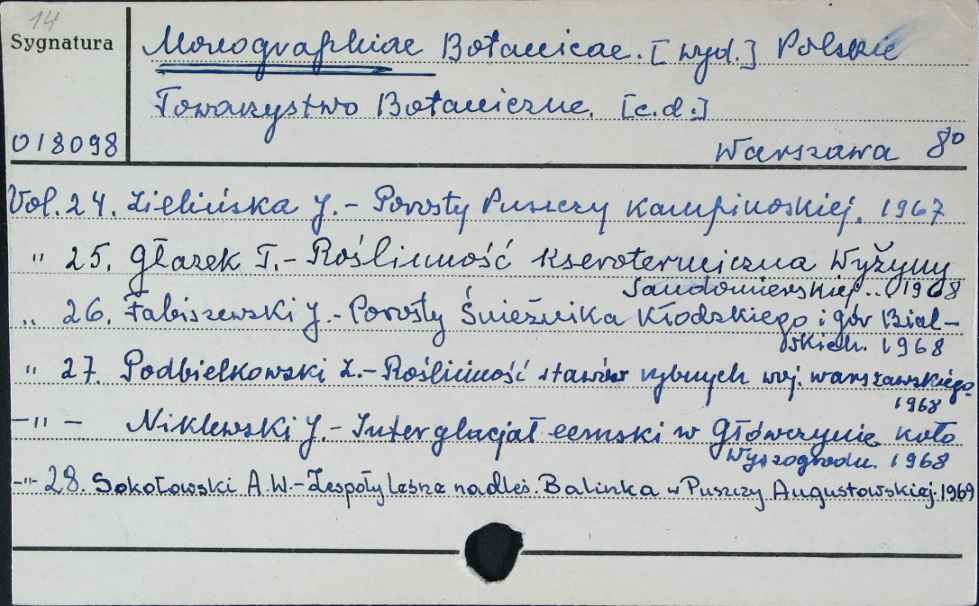 14
Sygnatura
Monographiae Botanicae. [wyd.] Polskie
Towarzystwo Botaniczne. [c.d.]
018098
Warszawa 8°
Vol. 24. Zielińska J.- Porosty Puszczy Kampinoskiej. 1967
" 25. Głazek T.- Roślinność kserotermiczna Wyżyny
Sandomierskiej... 1968
" 26. Fabiszewski J.- Porosty Śnieżnika Kłodzkiego i gór Bial-
skich. 1968
" 27. Podbielkowski Z.- Roślinność stawów rybnych woj. warszawskiego
1968
-"- Niklewski J.- Interglacjał eemski w Główczynie koło
Wyszogrodu. 1968
-"- 28. Sokołowski A.W.- Zespoły leśne nadleś. Balinka w Puszczy Augustowskiej. 1969